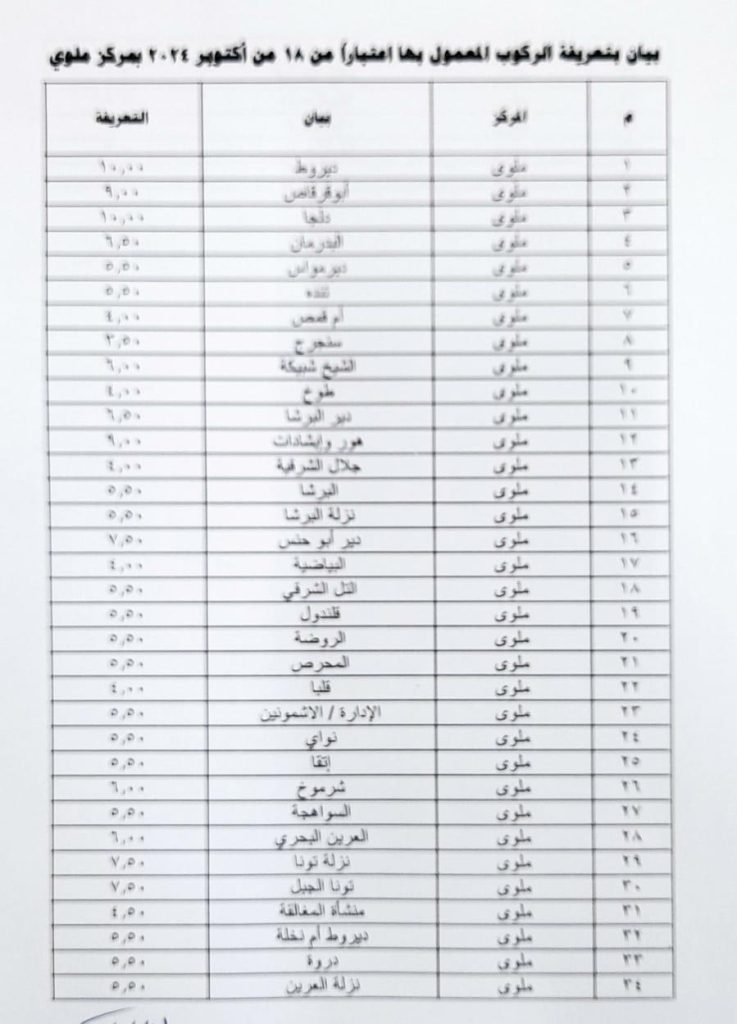 بيان بتعريفة الركوب المعمول بها اعتباراً من ١٨ من أكتوبر ٢٠٢٤ بمركز ملوي
م المركز بيان التعريفة
١ ملوى ديروط ١٠,٠٠
٢ ملوى أبوقرقاص ٩,٠٠
٣ ملوى دلجا ١٠,٠٠
٤ ملوى البدرمان ٦,٥٠
٥ ملوى ديرمواس ٥,٥٠
٦ ملوى تنده ٥,٥٠
٧ ملوى أم قمص ٤,٠٠
٨ ملوى سنجرج ٣,٥٠
٩ ملوى الشيخ شبيكة ٦,٠٠
١٠ ملوى طوخ ٤,٠٠
١١ ملوى دير البرشا ٦,٥٠
١٢ ملوى هور وإبشادات ٩,٠٠
١٣ ملوى جلال الشرقية ٤,٠٠
١٤ ملوى البرشا ٥,٥٠
١٥ ملوى نزلة البرشا ٥,٥٠
١٦ ملوى دير أبو حنس ٧,٥٠
١٧ ملوى البياضية ٤,٠٠
١٨ ملوى التل الشرقي ٥,٥٠
١٩ ملوى قلندول ٥,٥٠
٢٠ ملوى الروضة ٥,٥٠
٢١ ملوى المحرص ٥,٥٠
٢٢ ملوى قلبا ٤,٠٠
٢٣ ملوى الإدارة / الاشمونين ٥,٥٠
٢٤ ملوى نواي ٥,٥٠
٢٥ ملوى إتقا ٥,٥٠
٢٦ ملوى شرموخ ٦,٠٠
٢٧ ملوى السواهجة ٥,٥٠
٢٨ ملوى العرين البحري ٦,٠٠
٢٩ ملوى نزلة تونا ٧,٥٠
٣٠ ملوى تونا الجبل ٧,٥٠
٣١ ملوى منشأة المغالقة ٤,٥٠
٣٢ ملوى ديروط أم نخلة ٥,٥٠
٣٣ ملوى دروة ٥,٥٠
٣٤ ملوى نزلة العرين ٥,٥٠